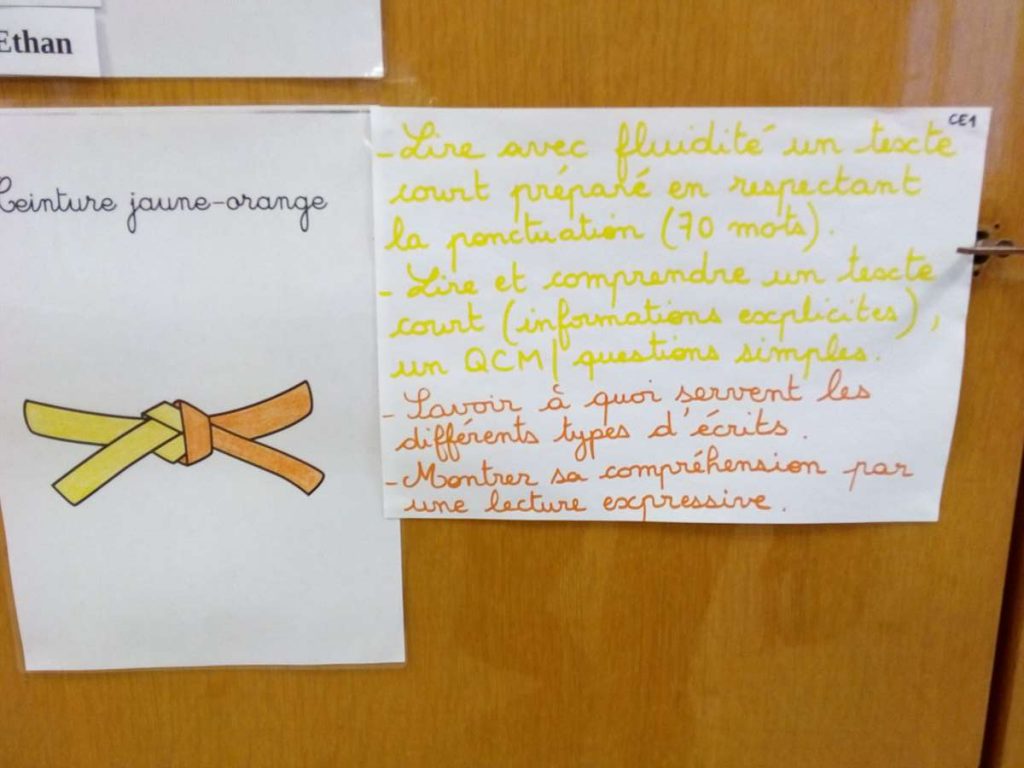 Ethan
Ceinture jaune-orange
CE1
- Lire avec fluidité un texte
court préparé en respectant
la ponctuation (70 mots).
- Lire et comprendre un texte
court (informations explicites),
un QCM / questions simples.
- Savoir à quoi servent les
différents types d'écrits.
- Montrer sa compréhension par
une lecture expressive.